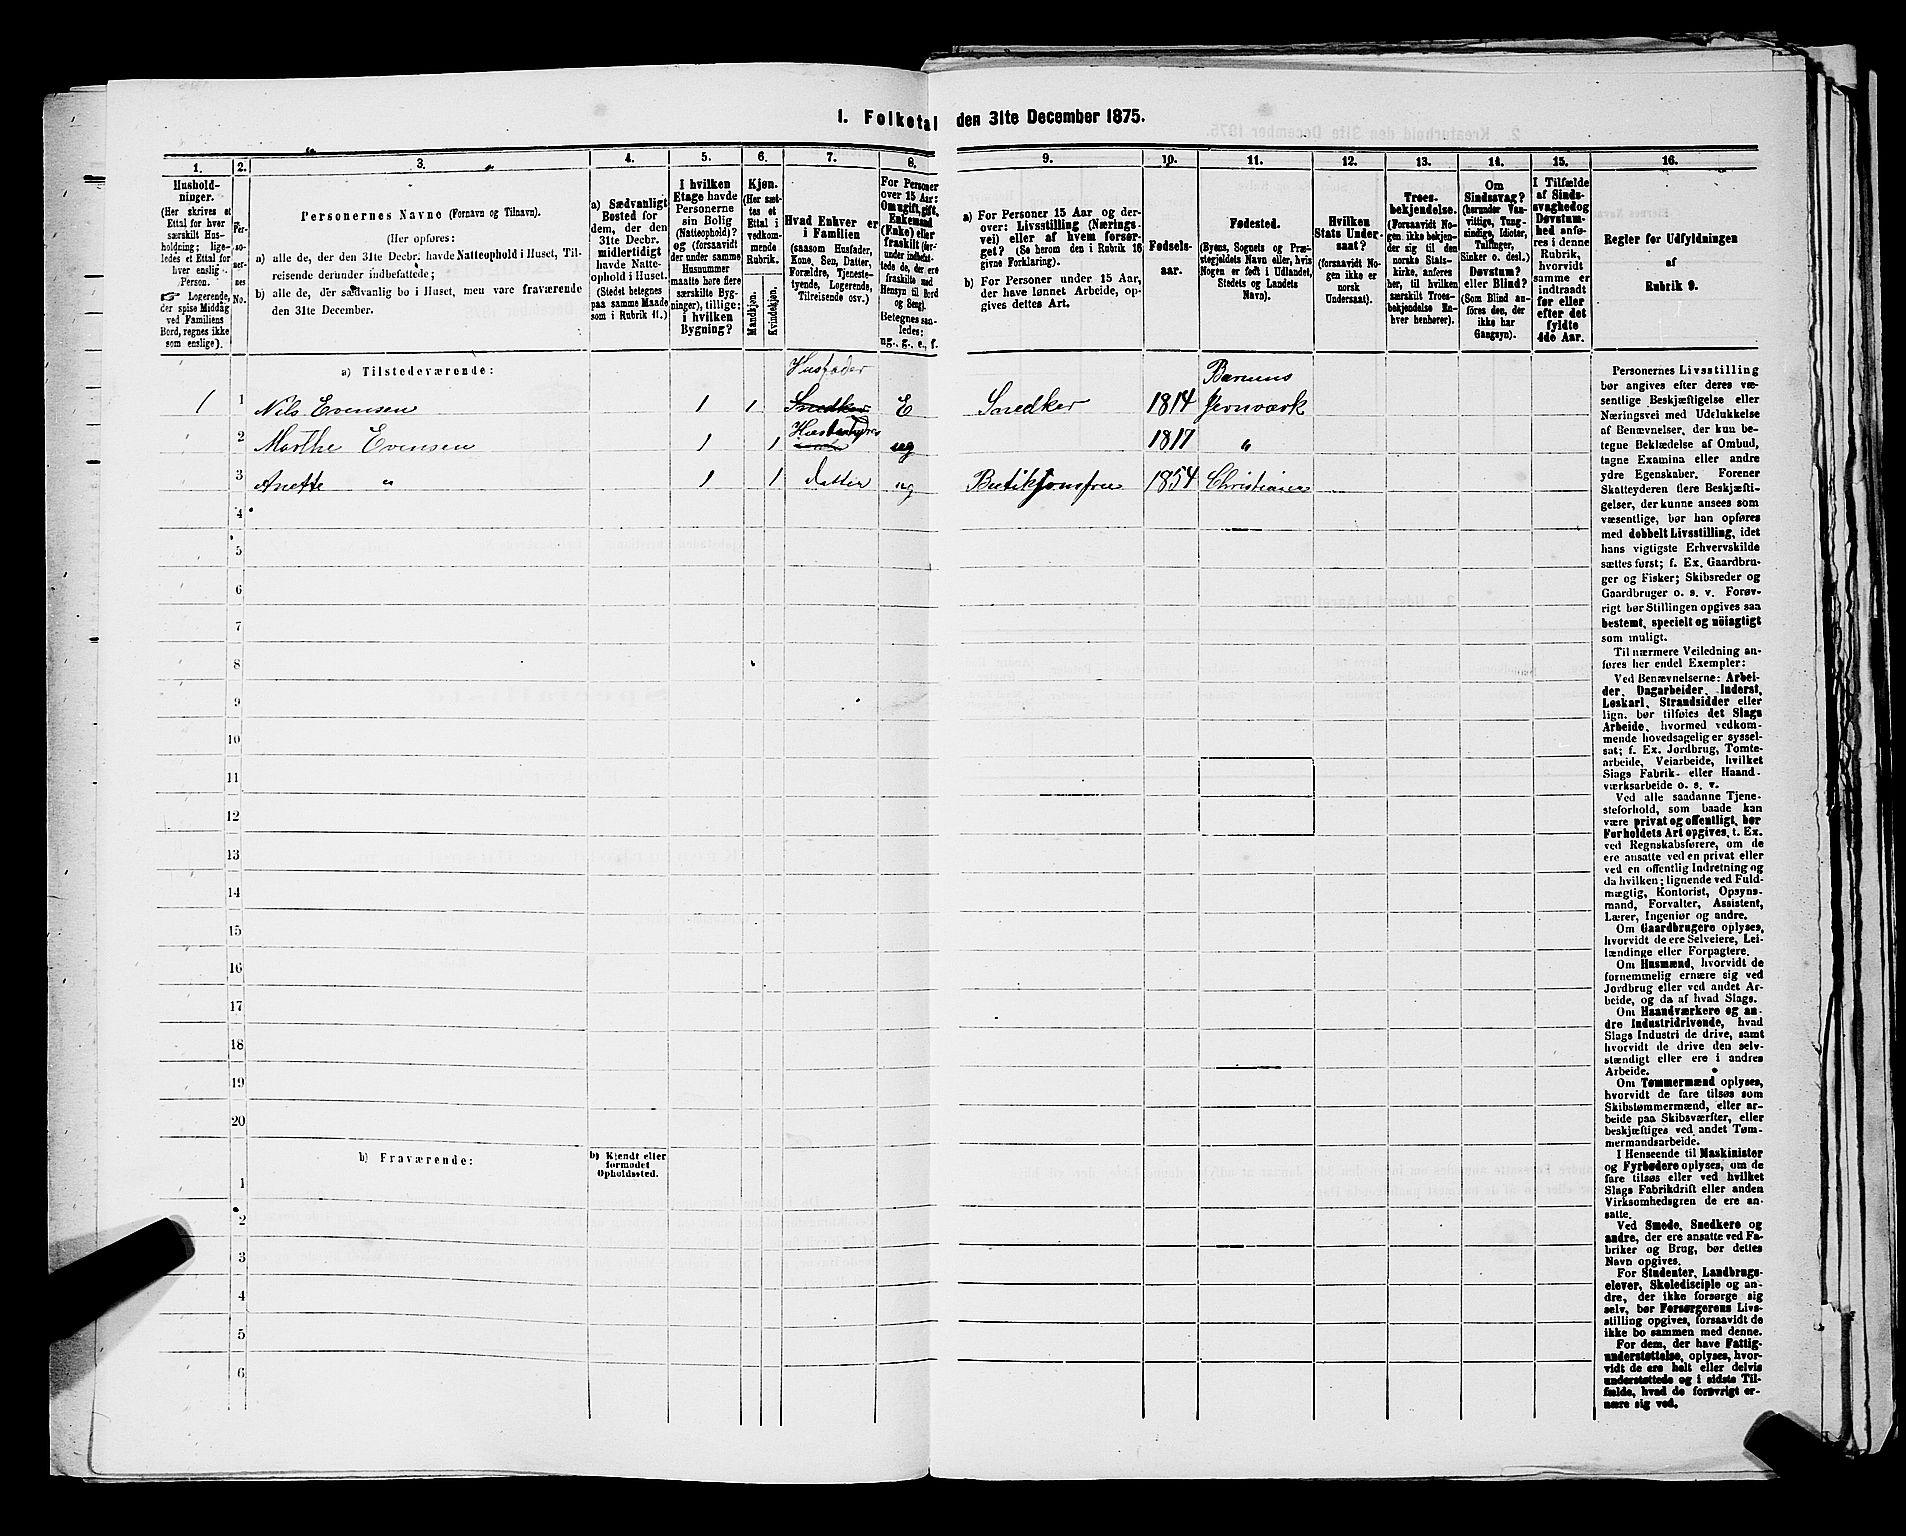 1. Folketal den 31te December 1875.
1. 2. 3. 4. 5. 6. 7. 8. 9. 10. 11. 12. 13. 14. 15. 16.
Hushold-
ninger.
(Her skrives et
Ettal for hver
særskilt Hus-
holdning; lige-
ledes et Ettal for
hver enslig
Person.
☞ Logerende,
der spise Middag
ved Familiens
Bord, regnes ikke
som enslige).
Per-
so-
ner-
nes
No.
Personernes Navne (Fornavn og Tilnavn).
(Her opføres:
a) alle de, der den 31te Decbr. havde Natteophold i Huset, Til-
reisende derunder indbefattede;
b) alle de, der sædvanlig bo i Huset, men vare fraværende
den 31te December.
a) Sædvanligt
Bosted for
dem, der den
31te Decbr.
midlertidigt
havde Natte-
ophold i Huset.
(Stedet betegnes
paa samme Maade
som i Rubrik 11.)
I hvilken
Etage havde
Personerne
sin Bolig
(Natteophold)?
og (forsaavidt
der under samme
Husnummer
maatte høre flere
særskilte Byg-
ninger), tillige:
i hvilken
Bygning?
Kjøn.
(Her sæt-
tes et
Ettal i
vedkom-
mende
Rubrik.
Mandkjøn.
Kvindekjøn.
Hvad Enhver er
i Familien
(saasom Husfader,
Kone, Søn, Datter,
Forældre, Tjeneste-
tyende, Logerende,
Tilreisende osv.)
For Personer
over 15 Aar:
Om ugift, gift,
Enkemand
(Enke) eller
fraskilt (her-
under indbefat-
tede de, der ere
fraskilte med
Hensyn til Bord
og Seng).
Betegnes saa-
ledes:
ug., g., e., f.
a) For Personer 15 Aar og der-
over: Livsstilling (Nærings-
vei) eller af hvem forsør-
get? (Se herom den i Rubrik 16
givne Forklaring).
b) For Personer under 15 Aar,
der have lønnet Arbeide, op-
gives dettes Art.
Fødsels-
aar.
Fødested.
(Byens, Sognets og Præ-
stegjeldets Navn eller, hvis
Nogen er født i Udlandet,
Stedets og Landets
Navn).
Hvilken
Stats Under-
saat?
(forsaavidt No-
gen ikke er
norsk
Undersaat).
Troes-
bekjendelse.
(Forsaavidt No-
gen ikke bekjen-
der sig til den
norske Stats-
kirke, anføres
her, til hvilken
særskilt Troes-
bekjendelse En-
hver henhører).
Om
Sindssvag?
(herunder Van-
vittige, Tung-
sindige, Idioter,
Tullinger,
Sinker o. desl.)
Døvstum?
eller Blind?
(Som Blind an-
føres den, der
ikke har
Gangsyn).
I Tilfælde
af Sinds-
svaghed og
Døvstum-
hed anfø-
res i denne
Rubrik,
hvorvidt
samme er
indtraadt
før eller
efter det
fyldte
4de Aar.
Regler for Udfyldningen
af
Rubrik 9.
a) Tilstedeværende:
1 1 Nils Evensen 1 1 Husfader Snedker E Snedker 1814 Bærums Jernværk
2 Marthe Evensen 1 1 Husbestyres ug 1817 "
3 Anette " 1 1 datter ug Butikjomfru 1854 Christiania
4
5
6
7
8
9
10
11
12
13
14
15
16
17
18
19
20
b) Fraværende:
b) Kjendt eller
formodet
Opholdssted.
1
2
3
4
5
6
Personernes Livsstilling
bør angives efter deres væ-
sentlige Beskjæftigelse eller
Næringsvei med Udelukkelse
af Benævnelser, der kun be-
tegne Beklædelse af Ombud,
tagne Examina eller andre
ydre Egenskaber. Forener
Skatteyderen flere Beskjæfti-
gelser, der kunne ansees som
væsentlige, bør han opføres
med dobbelt Livsstilling, idet
hans vigtigste Erhvervskilde
sættes først; f. Ex. Gaardbru-
ger og Fisker; Skibsreder og
Gaardbruger o. s. v. Forøv-
rigt bør Stillingen opgives saa
bestemt, specielt og nöiagtigt
som muligt.
Til nærmere Veiledning an-
føres her endel Exempler:
Ved Benævnelserne: Arbei-
der, Dagarbeider, Inderst,
Løskarl, Strandsidder eller
lign. bør tilføies det Slags
Arbeide, hvormed vedkom-
mende hovedsagelig er syssel-
sat; f. Ex. Jordbrug, Tomte-
arbeide, Veiarbeide, hvilket
Slags Fabrik- eller Haand-
værksarbeide o. s. v.
Ved alle saadanne Tjene-
steforhold, som baade kan
være privat og offentligt, bør
Forholdets Art opgives, t. Ex.
ved Regnskabsførere, om de
ere ansatte ved en privat eller
ved en offentlig Indretning og
da hvilken; lignende ved Fuld-
mægtig, Kontorist, Opsyns-
mand, Forvalter, Assistent,
Lærer, Ingeniør og andre.
Om Gaardbrugere oplyses,
hvorvidt de ere Selveiere, Lei-
lændinge eller Forpagtere.
Om Husmænd, hvorvidt de
fornemmelig ernære sig ved
Jordbrug eller ved andet Ar-
beide, og da af hvad Slags.
Om Haandværkere og an-
dre Industridrivende, hvad
Slags Industri de drive, samt
hvorvidt de drive den selv-
stændigt eller ere i andres
Arbeide.
Om Tømmermænd oplyses,
hvorvidt de fare tilsøs som
Skibstømmermænd, eller ar-
beide paa Skibsværfter, eller
beskjæftiges ved andet Tøm-
mermandsarbeide.
I Henseende til Maskinister
og Fyrbødere oplyses, om de
fare tilsøs eller ved hvilket
Slags Fabrikdrift eller anden
Virksomhedsgren de ere an-
satte.
Ved Smede, Snedkere og
andre, der ere ansatte ved Fa-
briker og Brug, bør dettes
Navn opgives.
For Studenter, Landbrugs-
elever, Skoledisciple og an-
dre, der ikke forsørge sig
selv, bør Forsørgerens Livs-
stilling opgives, forsaavidt de
ikke bo sammen med denne.
For dem, der have Fattig-
understøttelse, oplyses, hvor-
vidt de ere helt eller delvis
understøttede og i sidste Til-
fælde, hvad de forøvrigt er-
nære sig ved.